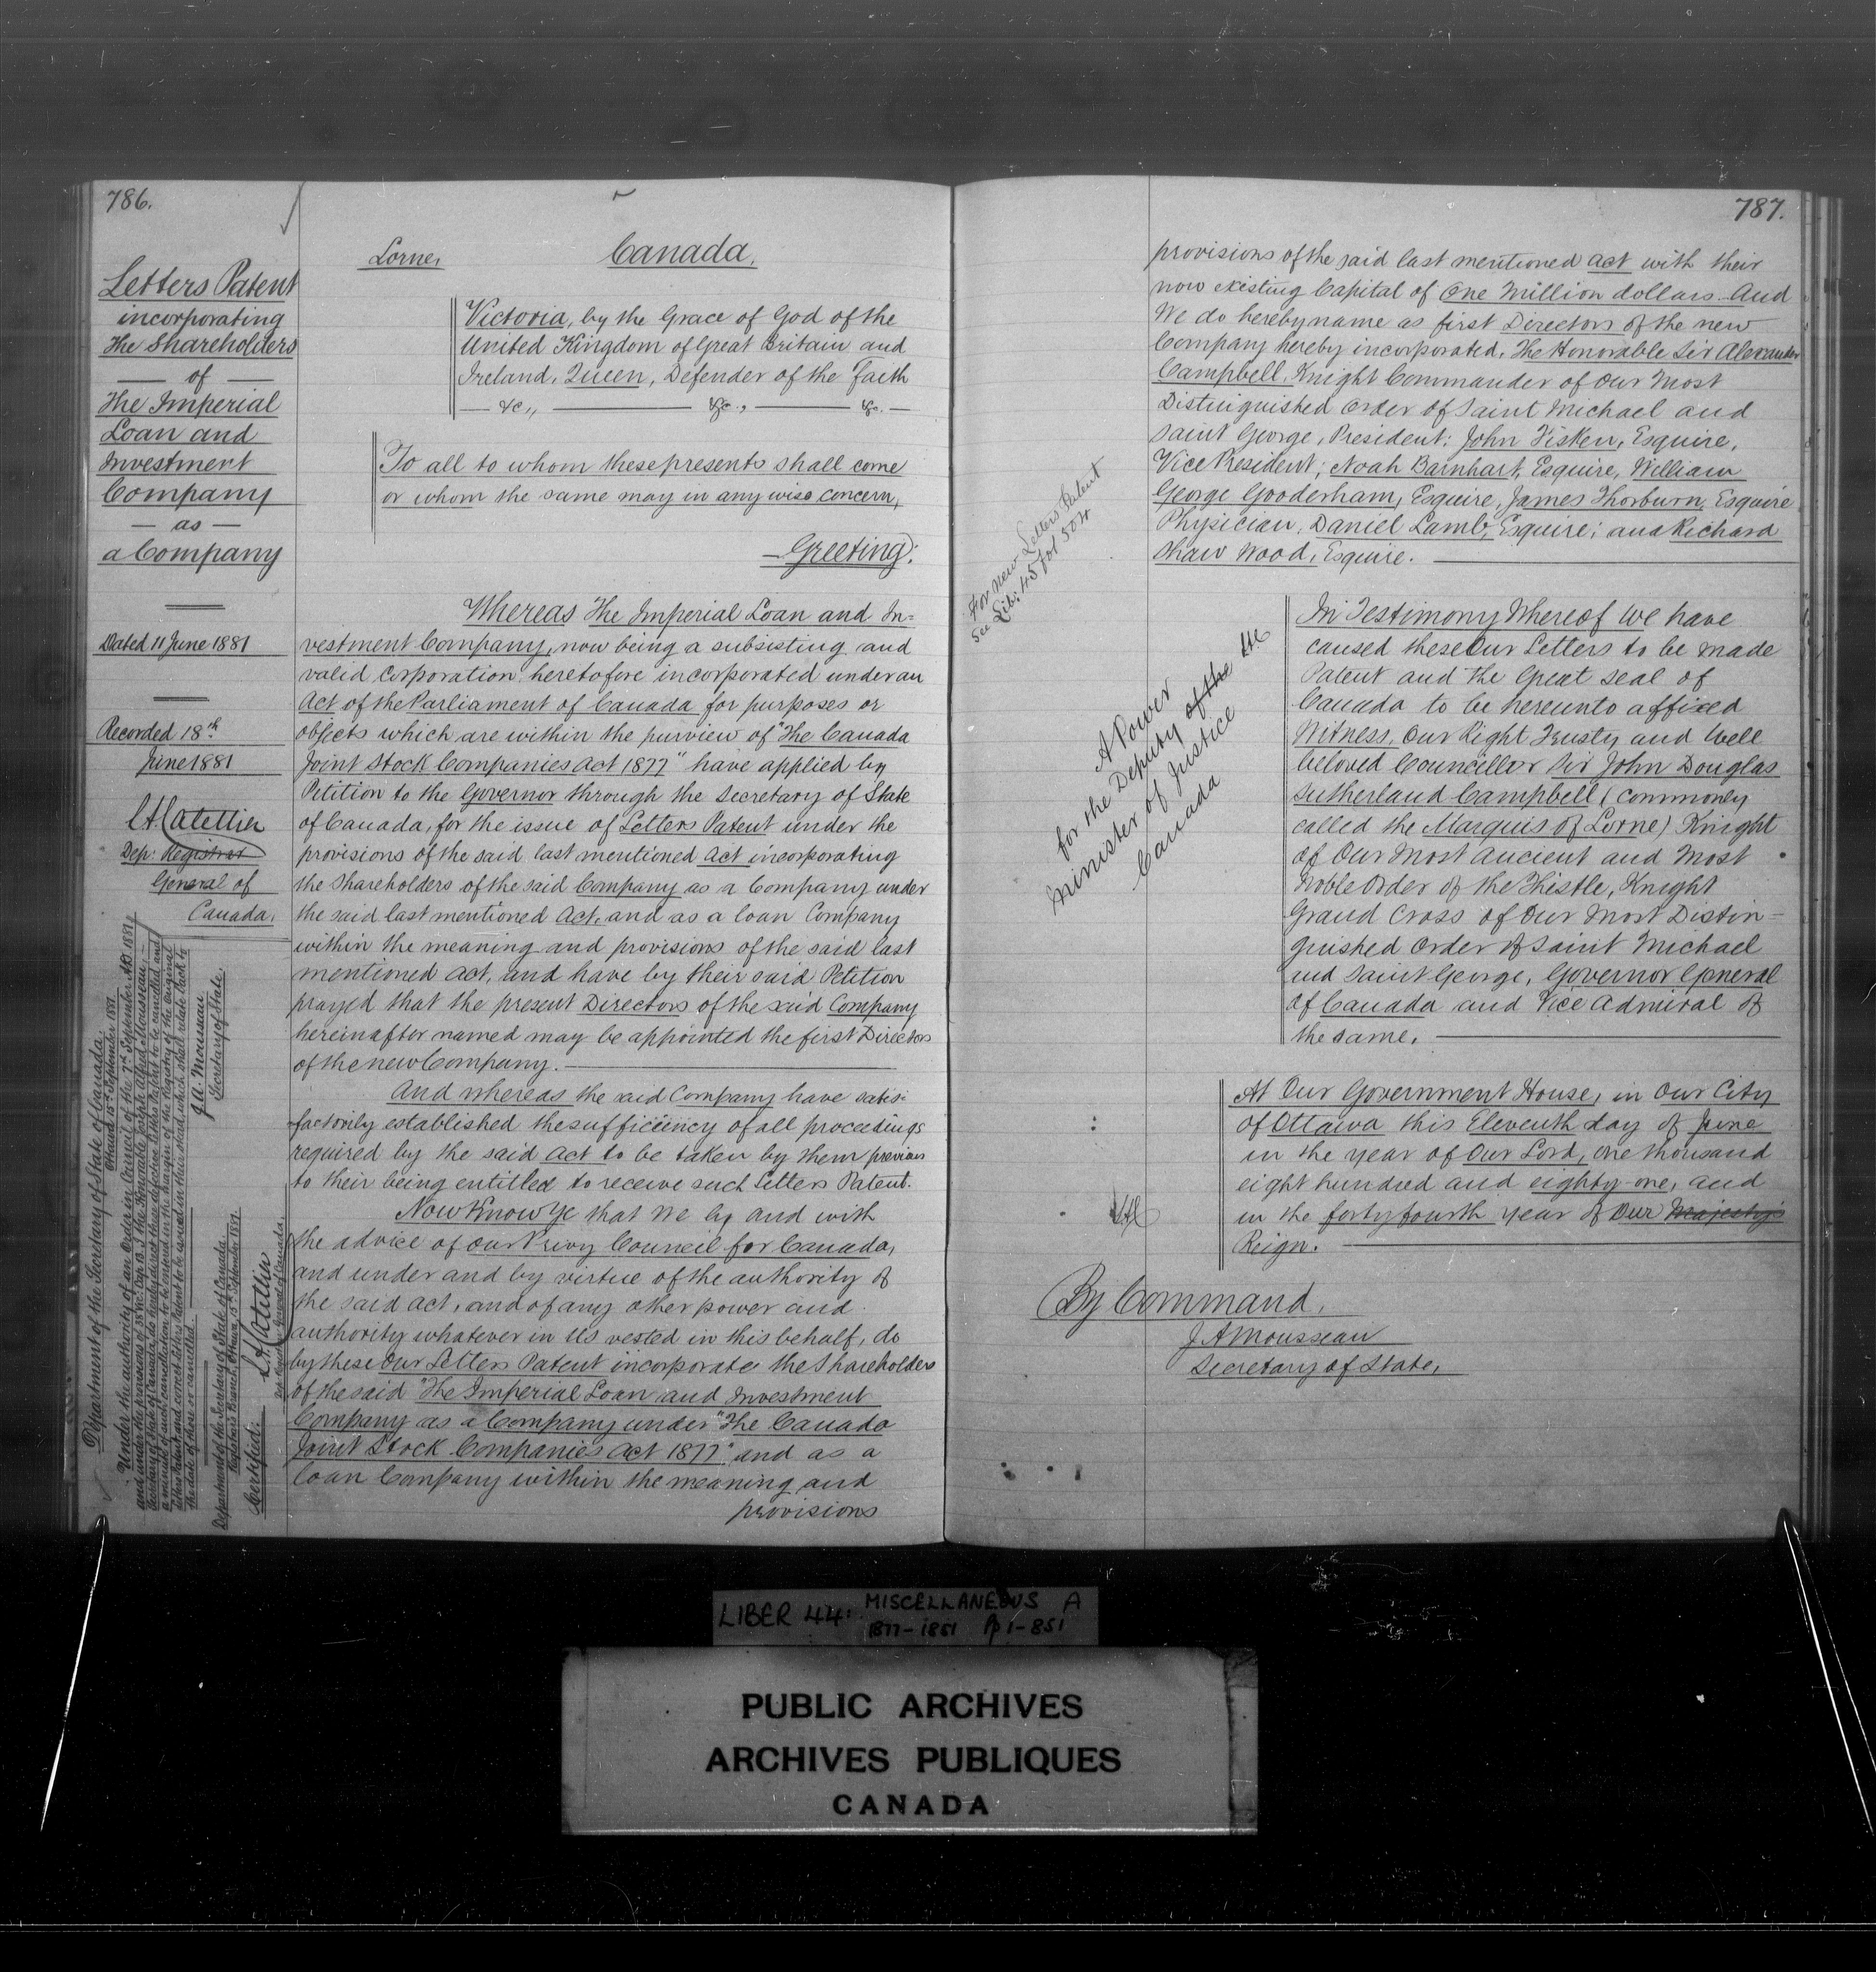 786.
Letters Patent
incorporating
The Shareholders
— of —
The Imperial
Loan and
Investment
Company
— as —
a Company
Dated 11 June 1881
Recorded 18th
June 1881
L A Catellier
Dep: Registrar
General of
Canada.
Department of the Secretary of State of Canada.
Ottawa 15th September 1881.
Under the authority of an Order in Council of the 7th September AD 1881,
J. A. Mousseau
Secretary of State.
Department of the Secretary of State of Canada.
Registrar's Branch, Ottawa, 15th September 1881.
Certified:
L A Catellier
Dep. Registrar General of Canada.
Lorne,
Canada.
Victoria, by the Grace of God of the
United Kingdom of Great Britain and
Ireland, Queen, Defender of the Faith
— &c., — &c., — &c. —
To all to whom these presents shall come
or whom the same may in any wise concern,
—Greeting:
Whereas The Imperial Loan and In=
vestment Company, now being a subsisting and
valid Corporation heretofore incorporated under an
Act of the Parliament of Canada for purposes or
objects which are within the purview of "The Canada
Joint Stock Companies Act 1877" have applied by
Petition to the Governor through the Secretary of State
of Canada, for the issue of Letters Patent under the
provisions of the said last mentioned Act incorporating
the Shareholders of the said Company as a Company under
the said last mentioned Act, and as a loan Company
within the meaning and provisions of the said last
mentioned Act, and have by their said Petition
prayed that the present Directors of the said Company
hereinafter named may be appointed the first Directors
of the new Company. —
And whereas the said Company have satis:
factorily established the sufficiency of all proceedings
required by the said Act to be taken by them previous
to their being entitled to receive such Letters Patent.
Now Know Ye that We by and with
the advice of Our Privy Council for Canada,
and under and by virtue of the authority of
the said Act, and of any other power and
authority whatever in Us vested in this behalf, do
by these Our Letters Patent incorporate the Shareholders
of the said "The Imperial Loan and Investment
Company as a Company under "The Canada
Joint Stock Companies Act 1877" and as a
loan Company within the meaning and
provisions
787.
provisions of the said last mentioned Act with their
now existing Capital of One Million dollars. And
We do hereby name as first Directors of the new
Company hereby incorporated, The Honorable Sir Alexander
Campbell, Knight Commander of Our Most
Distinguished Order of Saint Michael and
Saint George, President; John Fisken, Esquire,
Vice President; Noah Barnhart, Esquire, William
George Gooderham, Esquire, James Thorburn, Esquire
Physician, Daniel Lamb, Esquire; and Richard
Shaw Wood, Esquire. —
For new Letters Patent
See Lib: 45 fol 504
A Power
for the Deputy of the
Minister of Justice
Canada
In Testimony Whereof We have
caused these Our Letters to be made
Patent and the Great Seal of
Canada to be hereunto affixed
Witness, Our Right Trusty and Well
beloved Councillor Sir John Douglas
Sutherland Campbell (commonly
called the Marquis of Lorne) Knight
of Our Most Ancient and Most
Noble Order of the Thistle, Knight
Grand Cross of Our Most Distin=
guished Order of Saint Michael
and Saint George, Governor General
of Canada and Vice Admiral of
the same. —
At Our Government House, in Our City
of Ottawa this Eleventh day of June
in the year of Our Lord, one thousand
eight hundred and eighty-one, and
in the forty fourth year of Our Majesty's
Reign. —
By Command,
J A Mousseau
Secretary of State,
LIBER 44: MISCELLANEOUS A
1877-1881 Pp 1-851
PUBLIC ARCHIVES
ARCHIVES PUBLIQUES
CANADA